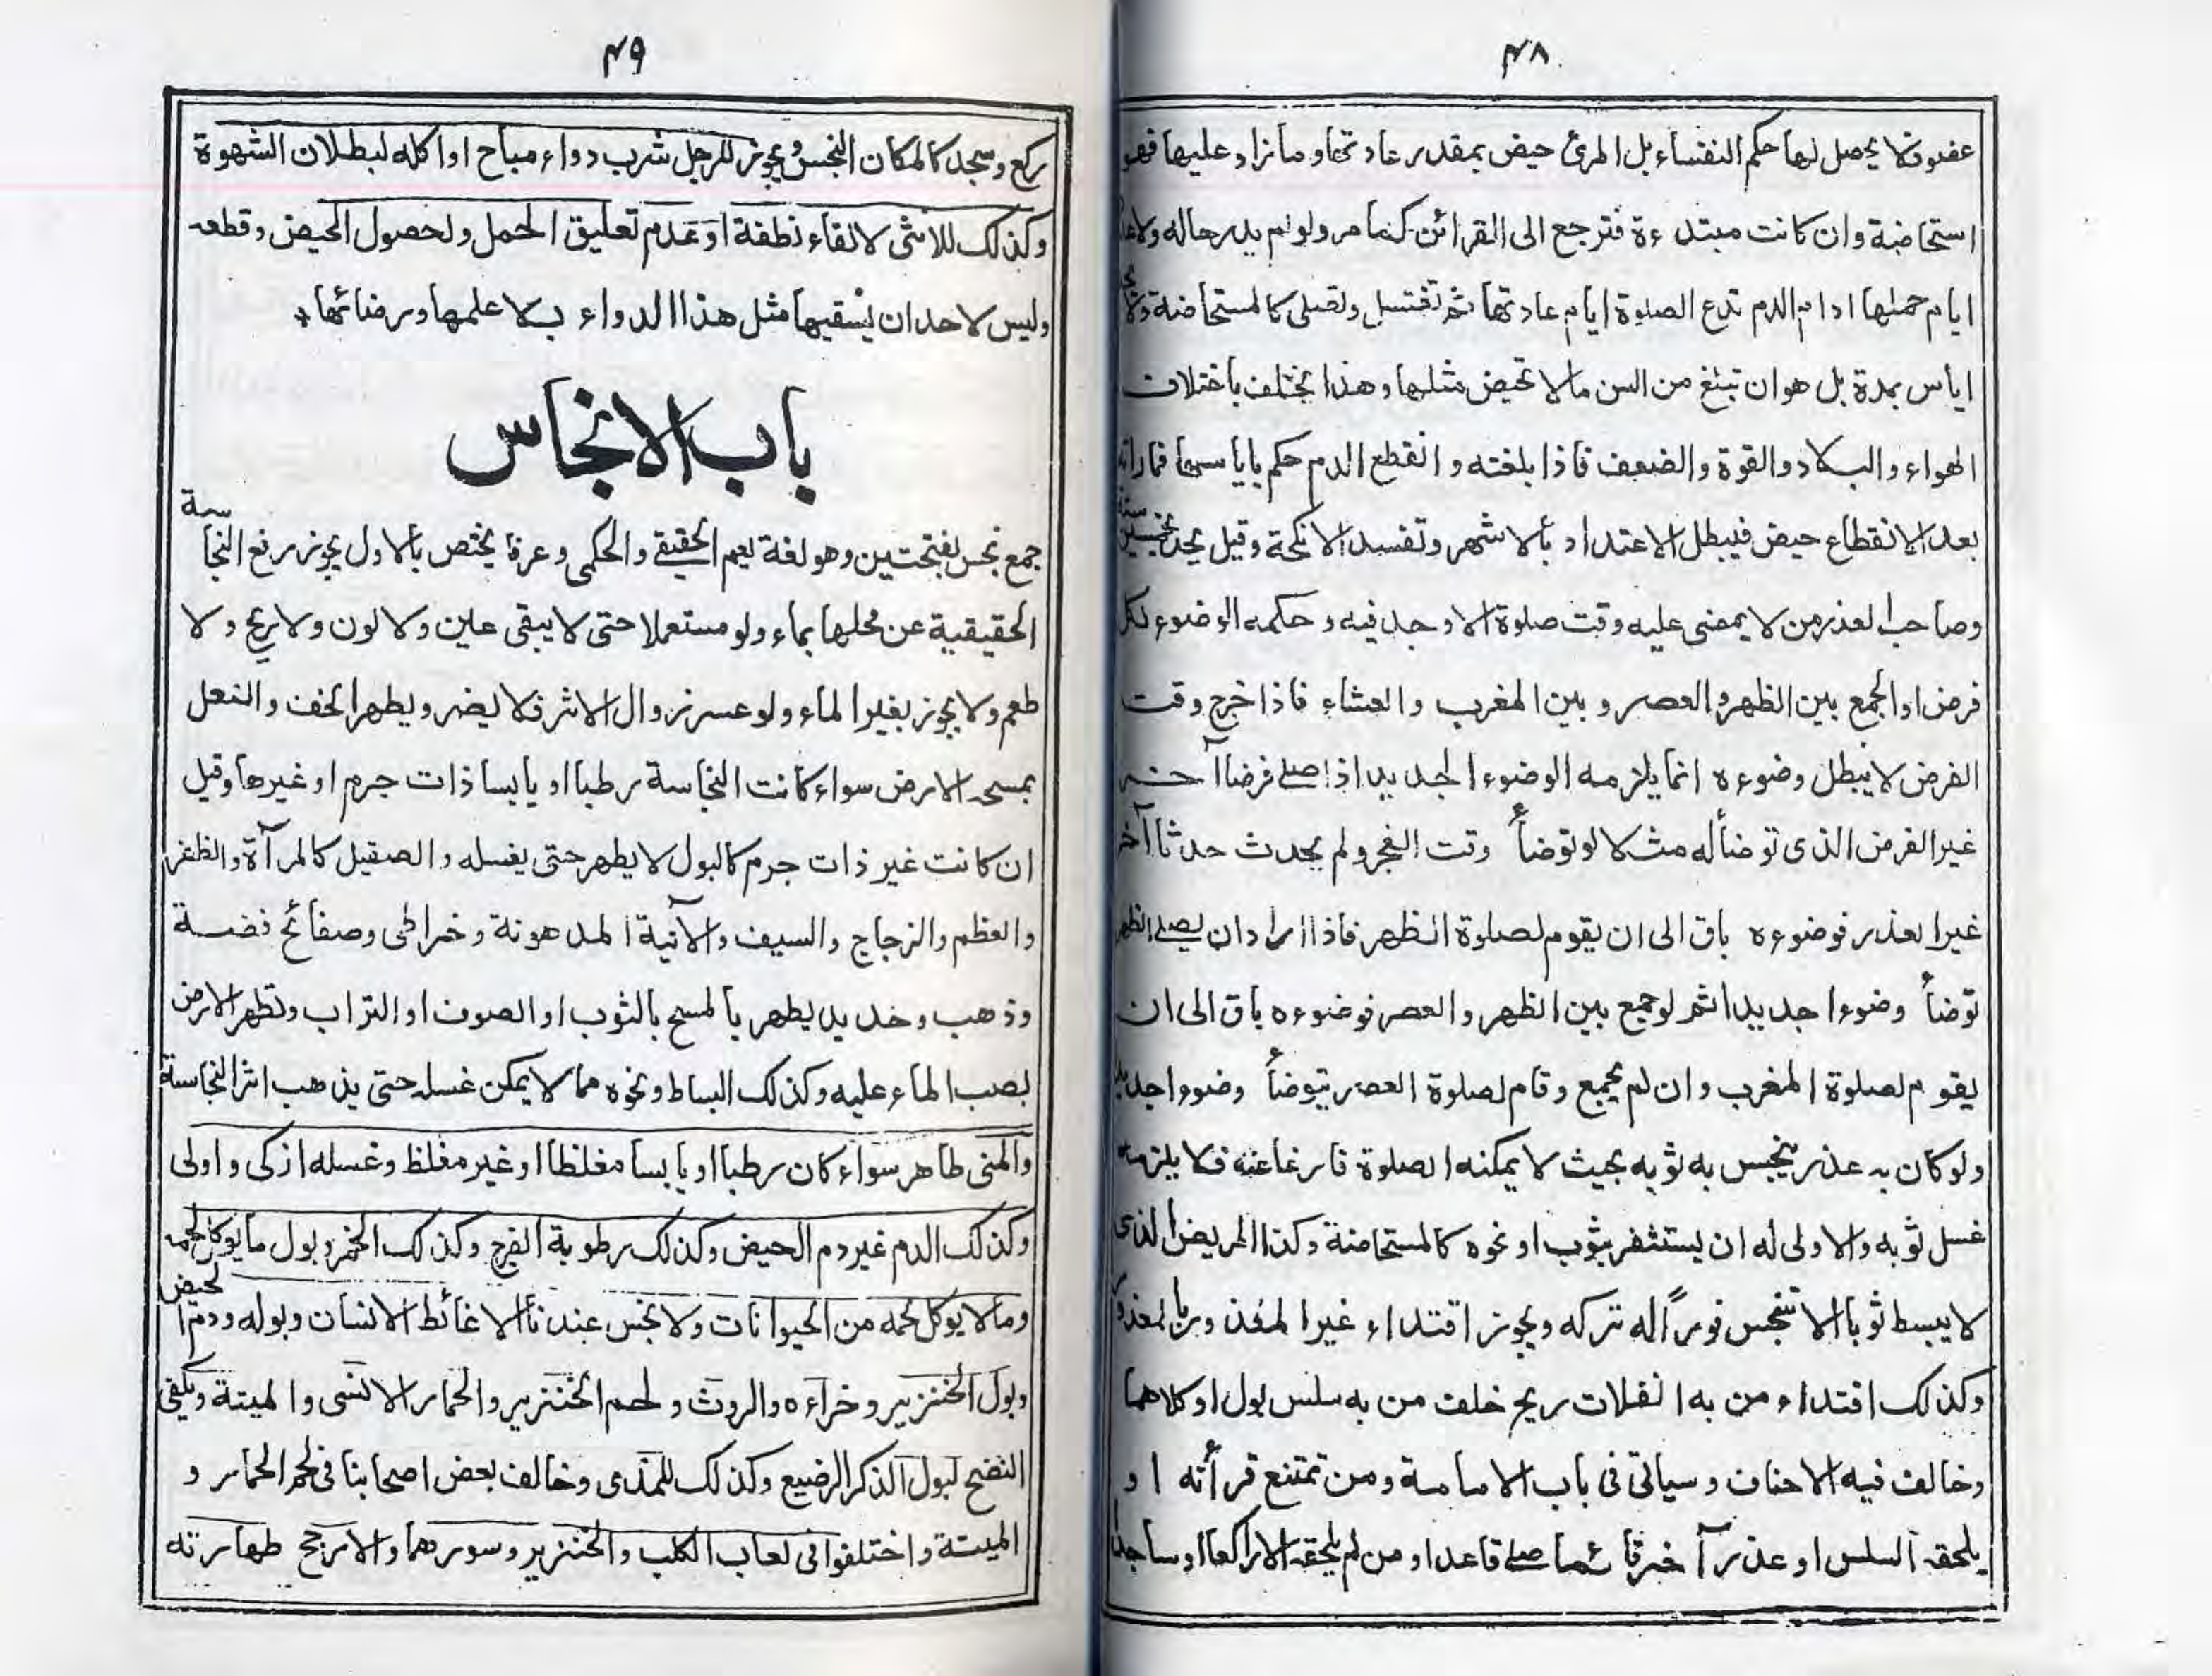 ۴۸
عفوفلا يحصل لها حكم النفساء بل المرئ حيض بمقدر عادتها وما زاد عليها فهو
استحاضة وان كانت مبتدءة فترجع الى القرائن كما مر ولو لم يدر حاله ولا عدد
ايام حملها ادام الدم تدع الصلوة ايام عادتها ثم تغتسل وتصلى كالمستحاضة ولا
اياس بمدة بل هو ان تبلغ من السن مالا تحيض مثلها وهذا يختلف باختلاف
الهواء والبلاد والقوة والضعف فاذا بلغته وانقطع الدم حكم باياسها فما راته
بعد الانقطاع حيض فيبطل الاعتداد بالاشهر وتفسد الانكحة وقيل يحد بخمسين سنة
وصاحب العذر من لا يمضى عليه وقت صلوة الا وجد فيه وحكمه الوضوء لكل
فرض او الجمع بين الظهر والعصر و بين المغرب والعشاء فاذا خرج وقت
الفرض لا يبطل وضوءه انما يلزمه الوضوء الجديد اذا صلے فرضا آخر
غير الفرض الذى توضأ له مثلا لو توضأ وقت الفجر ولم يحدث حدثا آخر
غير العذر فوضوءه باق الى ان يقوم لصلوة الظهر فاذا اراد ان يصلے الظهر
توضأ وضوءا جديدا ثم لو جمع بين الظهر والعصر فوضوءه باق الى ان
يقوم لصلوة المغرب وان لم يجمع وقام لصلوة العصر يتوضأ وضوءا جديد
ولو كان به عذر ينجس به ثوبه بحيث لا يمكنه الصلوة فارغا عنه فلا يلزمه
غسل ثوبه والاولى له ان يستثفر بثوب او نحوه كالمستحاضة وكذا المريض الذى
لا يبسط ثوبا الا تنجس فوراً له تركه ويجوز اقتداء غير المعذور بالمعذور
وكذلك اقتداء من به انفلات ريح خلف من به سلس بول او كلاهما
وخالف فيه الاحناف وسياتى فى باب الامامة ومن تمتنع قرأته او
يلحقه السلس او عذر آخر قائما صلے قاعدا ومن لم يلحقه الا راكعا او ساجدا
۴۹
ركع وسجد كالمكان النجس ويجوز للرجل شرب دواء مباح او اكله لبطلان الشهوة
وكذلك للانثى لالقاء نطفة او عدم تعليق الحمل ولحصول الحيض وقطعه
وليس لاحد ان يسقيها مثل هذا الدواء بلا علمها ورضائها
باب الانجاس
جمع نجس بفتحتين وهو لغة يعم الحقيقے والحكمى وعرفا يختص بالاول يجوز رفع النجاسة
الحقيقية عن محلها بماء ولو مستعملا حتى لا يبقى عين ولا لون ولا ريح ولا
طعم ولا يجوز بغير الماء ولو عسر زوال الاثر فلا يضر ويطهر الخف والنعل
بمسحه الارض سواء كانت النجاسة رطبا او يابسا ذات جرم او غيرها وقيل
ان كانت غير ذات جرم كالبول لا يطهر حتى يغسله والصقيل كالمرآة والظفر
والعظم والزجاج والسيف والآنية المدهونة وخراطى وصفائح فضة
وذهب وحديد يطهر بالمسح بالثوب او الصوف او التراب وتطهر الارض
بصب الماء عليه وكذلك البساط ونحوه مما لا يمكن غسله حتى يذهب اثر النجاسة
والمنى طاهر سواء كان رطبا او يابسا مغلظا او غير مغلظ وغسله ازكى واولى
وكذلك الدم غير دم الحيض وكذلك رطوبة الفرج وكذلك الخمر وبول ما يوكل لحمه
وما لا يوكل لحمه من الحيوانات ولا نجس عندنا الا غائط الانسان وبوله ودم الحيض
وبول الخنزير وخراءه والروث ولحم الخنزير والحمار الانسى والميتة ويكفى
النضح لبول الذكر الرضيع وكذلك للمذى وخالف بعض اصحابنا فى لحم الحمار و
الميتة واختلفوا فى لعاب الكلب والخنزير وسورهما والارجح طهارته